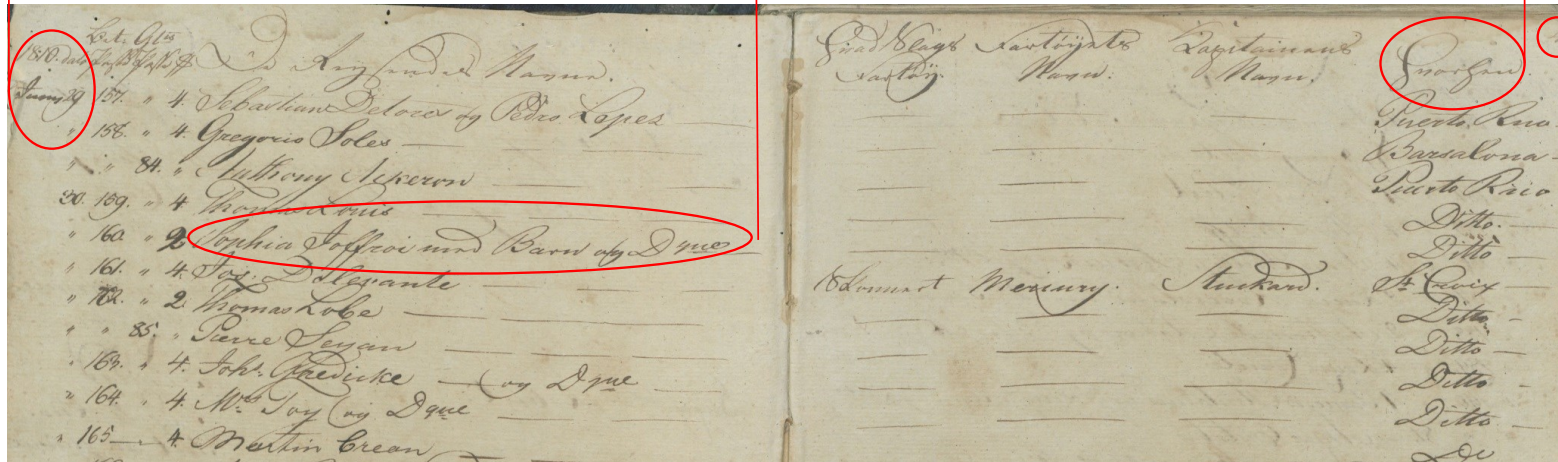 1810. dato Bet. Pass Glts Pass De Reysendes Navne. Hvad Slags Fartøy. Fartøyets Navn. Kapitainens Navn. Hvorhen
Juny 29 157. " 4. Sebastian Delores og Pedro Lopez Puerto Rico
" 158. " 4. Gregorio Soles Barsalona
" " 84. " Anthony Puerto Rico
30. 159. " 4 Thomas Louis Ditto.
" 160 " 2 Sophia Joffroi med Barn og Dque Ditto
" 161. " 4. Jos. D Slevante Skonnert Mercury. Stuckard. St Croix
" 162. " 2. Thomas Lobe Ditto
" " 85. " Pierre Seyan Ditto
" 163. " 4. Johs. Gredicke og Dque Ditto
" 164. " 4. Mrs Joy og Dque Ditto
" 165 " 4. Martin Crean Do